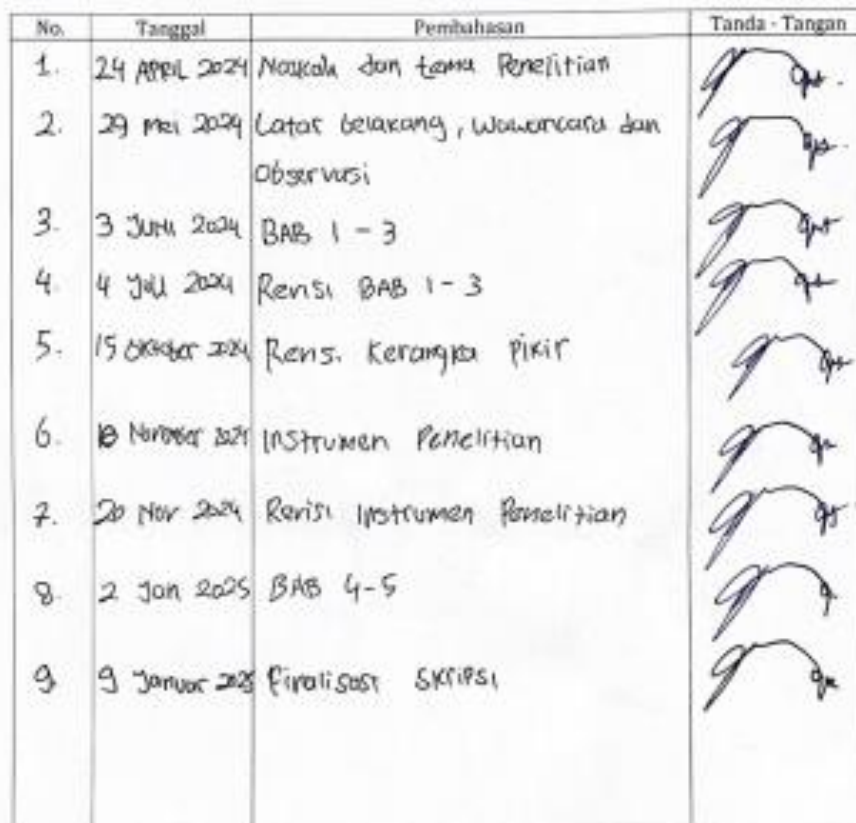 No. Tanggal Pembahasan Tanda - Tangan
1. 24 APRIL 2024 dan tema Penelitian
2. 29 Mei 2024 Latar belakang, Wawancara dan
Observasi
3. 3 Juni 2024 BAB 1 - 3
4. 4 Juli 2024 Revisi BAB 1 - 3
5. 15 Oktober 2024 Revisi Kerangka Pikir
6. November 2024 Instrumen Penelitian
7. 20 Nov 2024 Revisi Instrumen Penelitian
8. 2 Jan 2025 BAB 4-5
9 9 Januar 2025 Finalisasi Skripsi